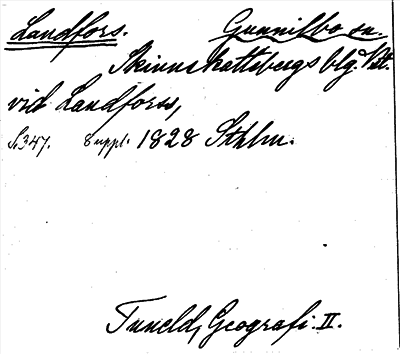 Landfors. Gunnilbo sn.
Skinnskattebergs blg. Vstm.
vid Landforss,
S. 347. 8 uppl. 1828 Sthlm.
Tuneld, Geografi. II.